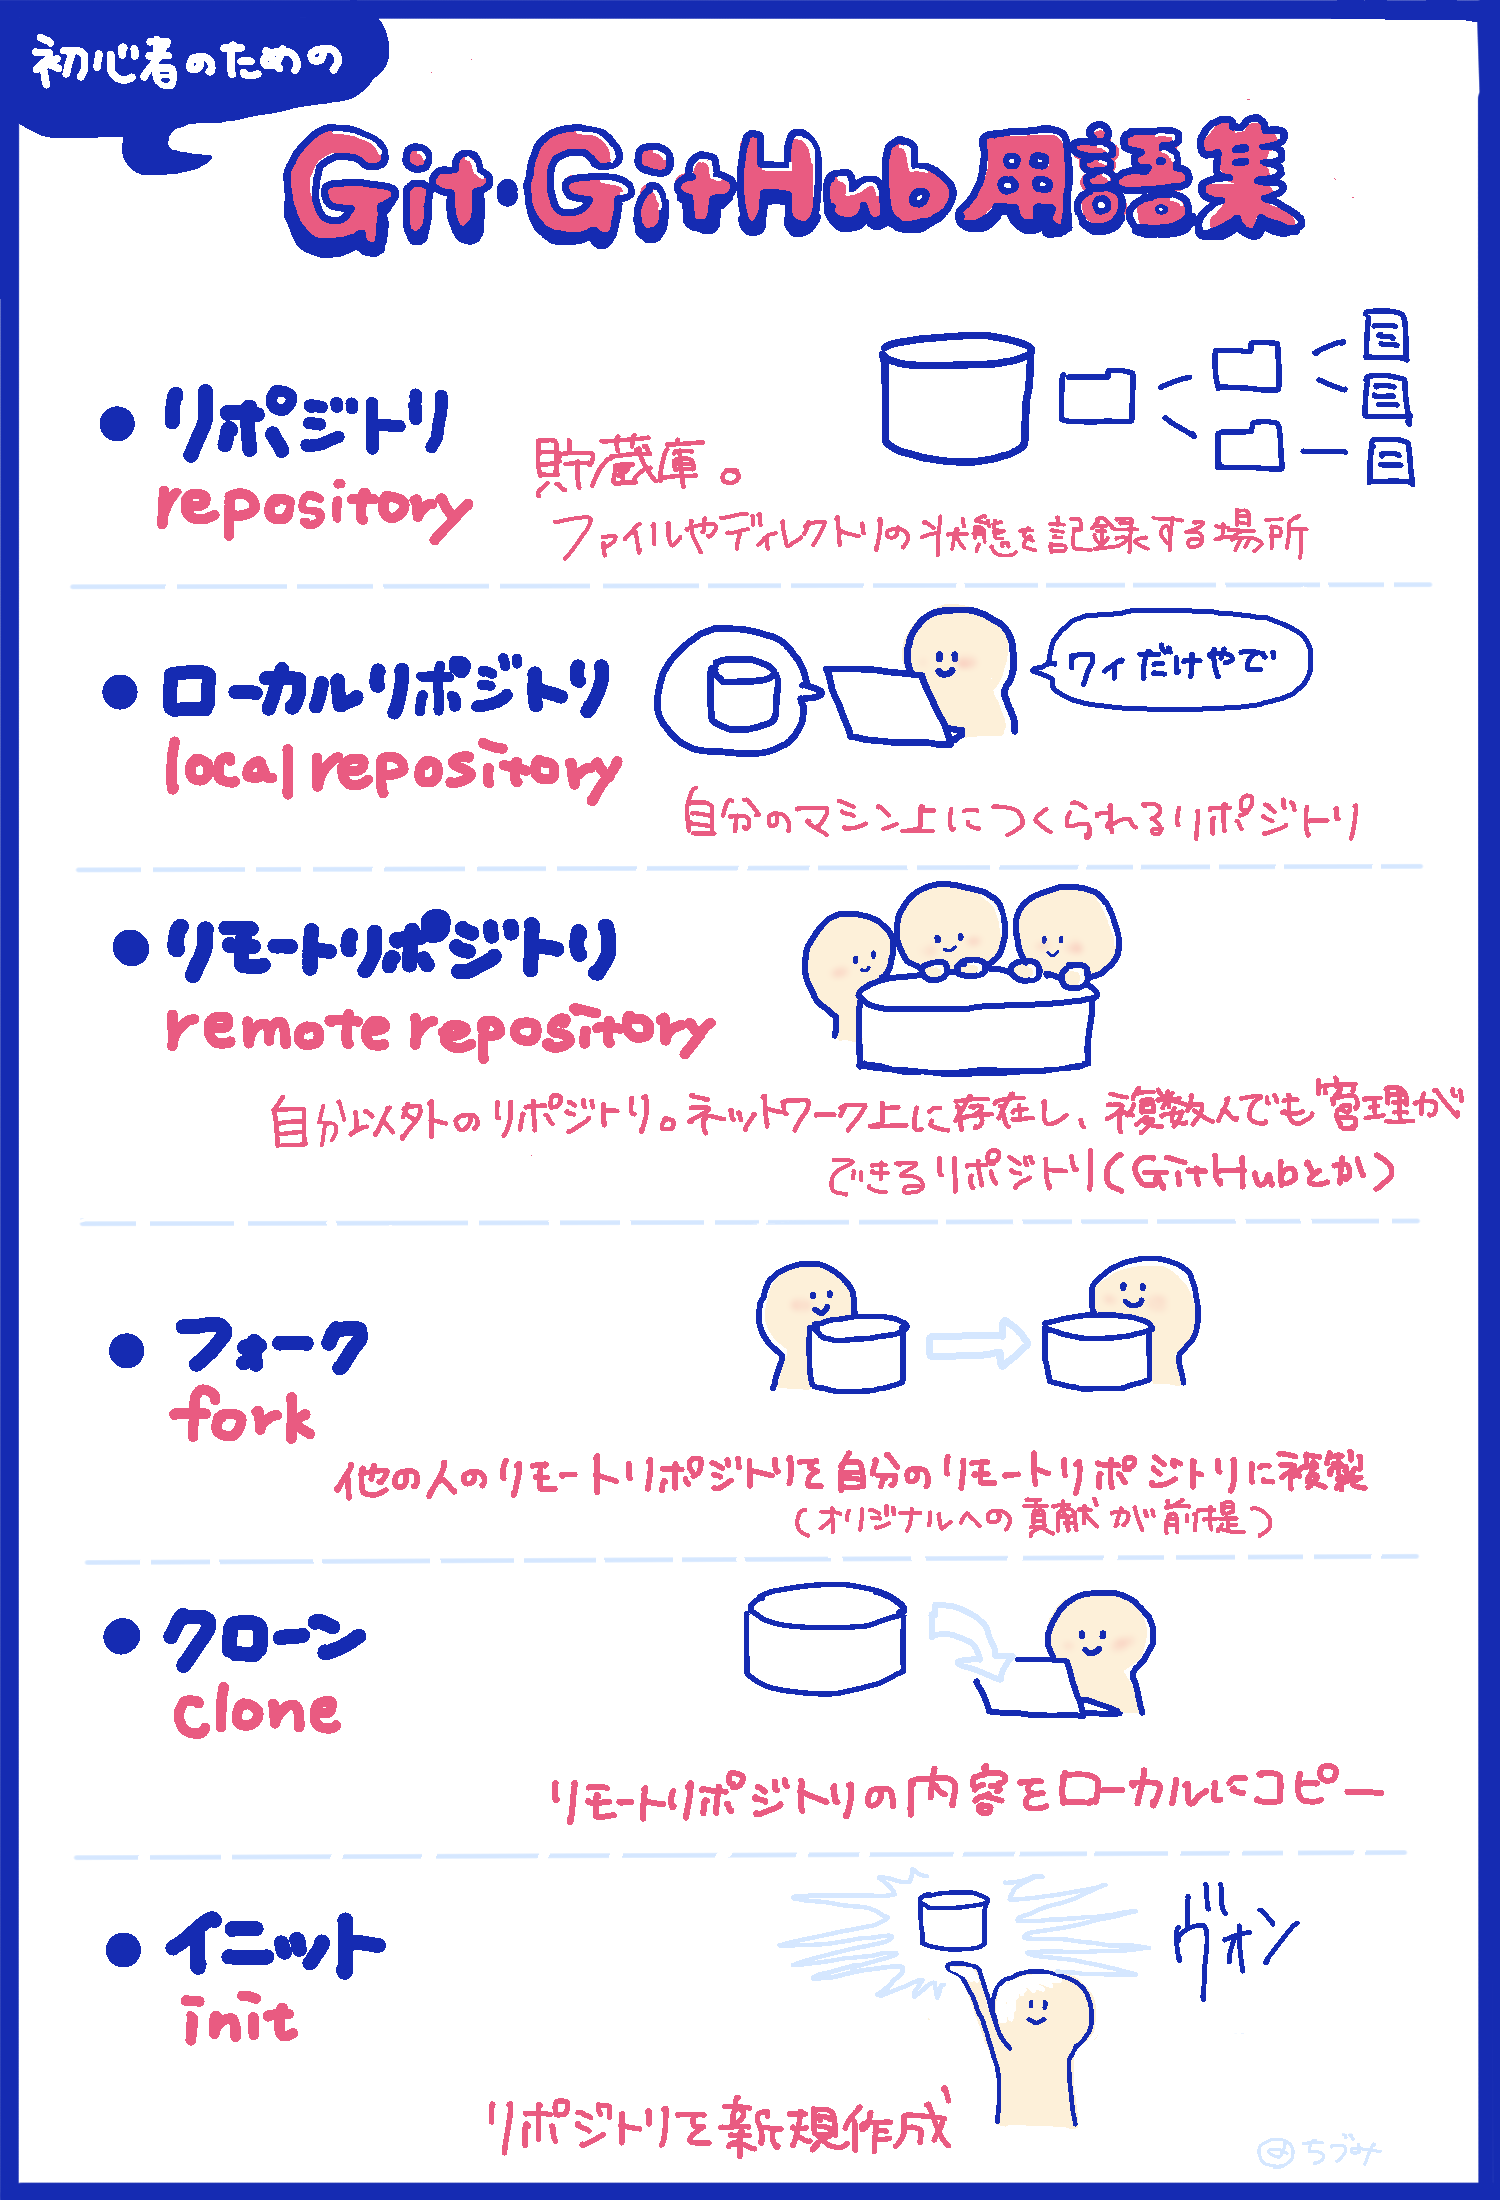 初心者のための
Git・GitHub用語集
● リポジトリ
repository
貯蔵庫。
ファイルやディレクトリの状態を記録する場所
● ローカルリポジトリ
local repository
ワイだけやで
自分のマシン上につくられるリポジトリ
● リモートリポジトリ
remote repository
自分以外のリポジトリ。ネットワーク上に存在し、複数人でも管理が
できるリポジトリ(GitHubとか)
● フォーク
fork
他の人のリモートリポジトリを自分のリモートリポジトリに複製
(オリジナルへの貢献が前提)
● クローン
clone
リモートリポジトリの内容をローカルにコピー
● イニット
init
ヴォン
リポジトリを新規作成
@ちづみ